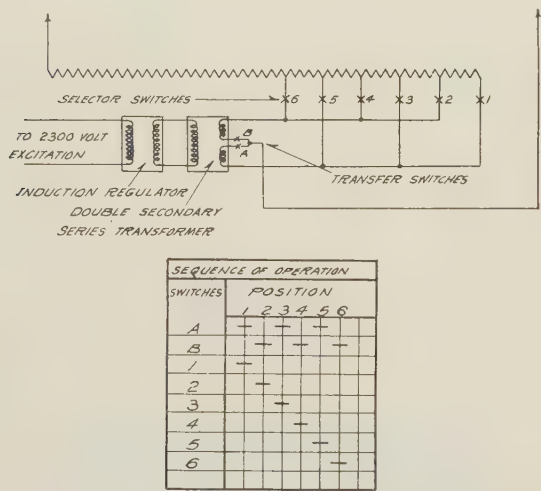 SELECTOR SWITCHES
6 5 4 3 2 1
TO 2300 VOLT
EXCITATION
B
A
TRANSFER SWITCHES
INDUCTION REGULATOR
DOUBLE SECONDARY
SERIES TRANSFORMER
SEQUENCE OF OPERATION
SWITCHES POSITION
1 2 3 4 5 6
A
B
1
2
3
4
5
6